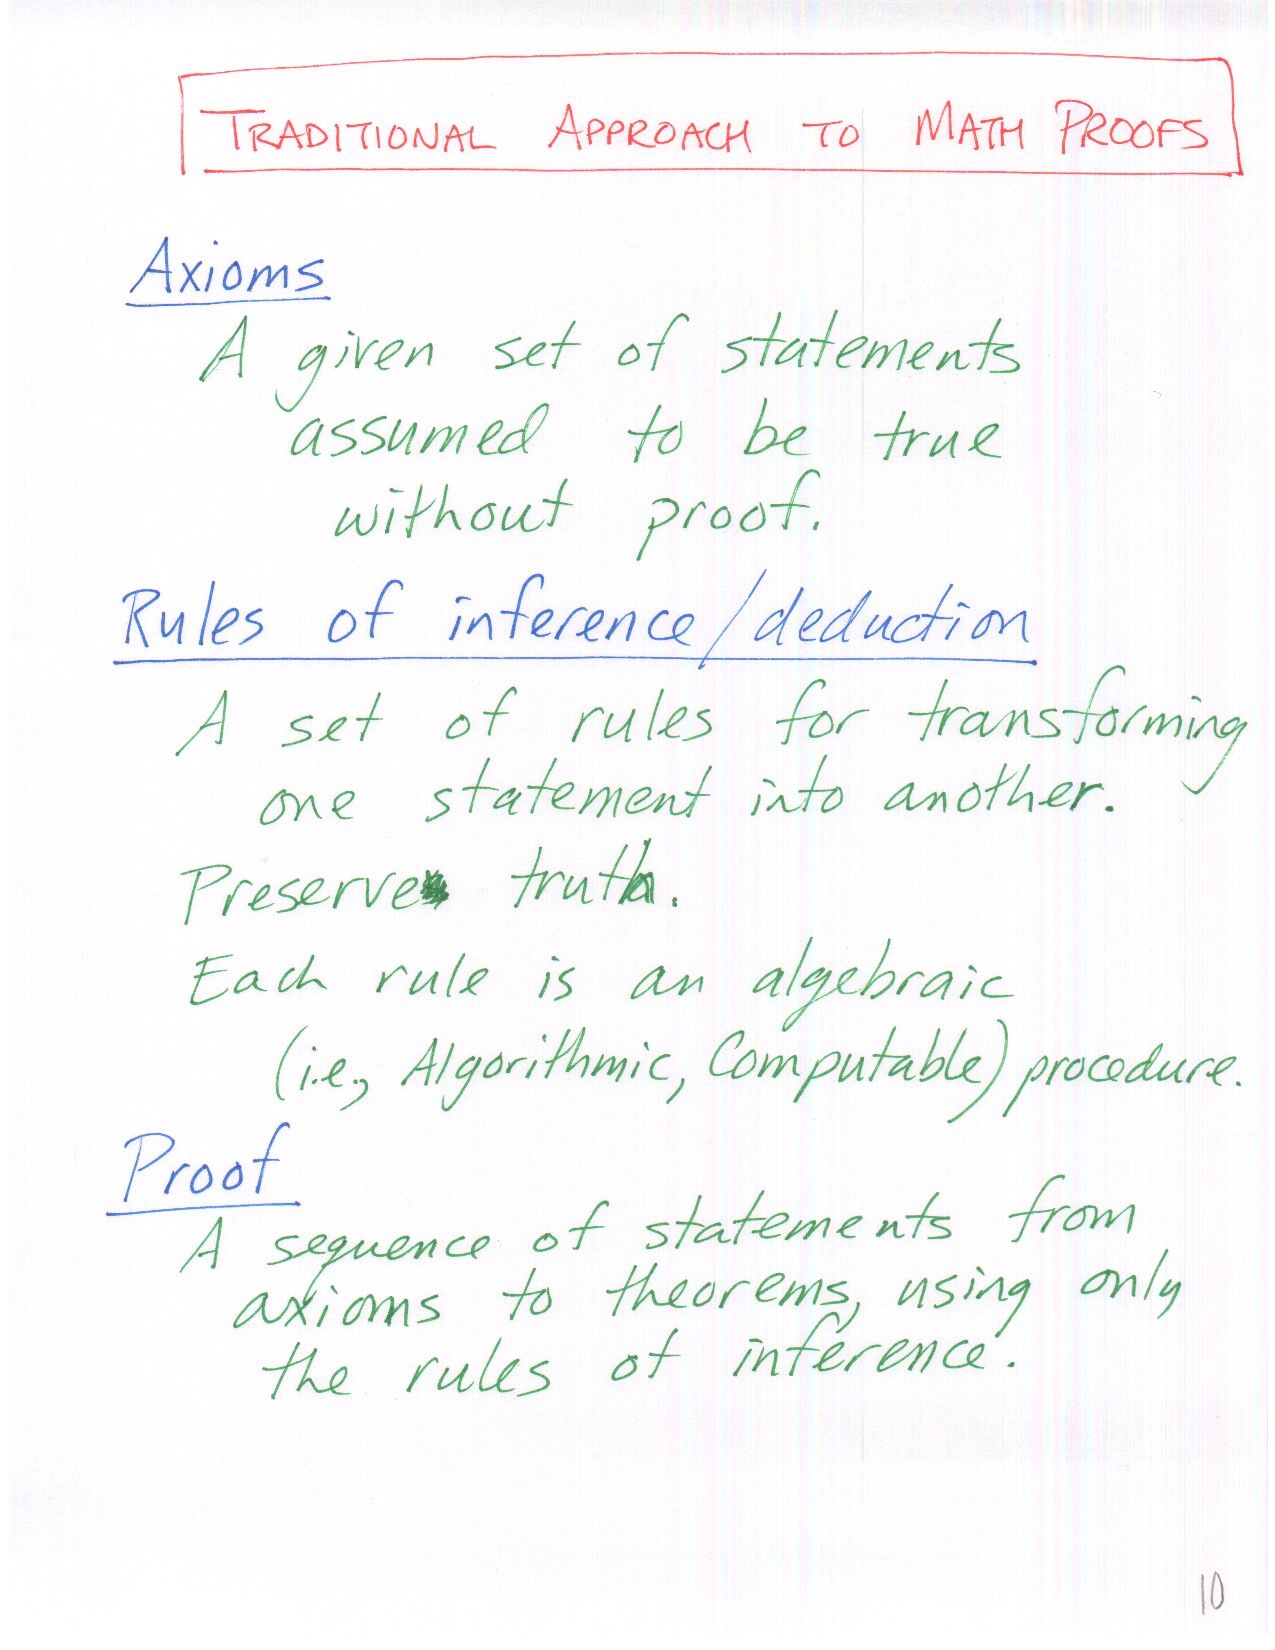 TRADITIONAL APPROACH TO MATH PROOFS
Axioms
A given set of statements
assumed to be true
without proof.
Rules of inference/deduction
A set of rules for transforming
one statement into another.
Preserve truth.
Each rule is an algebraic
(i.e., Algorithmic, Computable) procedure.
Proof
A sequence of statements from
axioms to theorems, using only
the rules of inference.
10